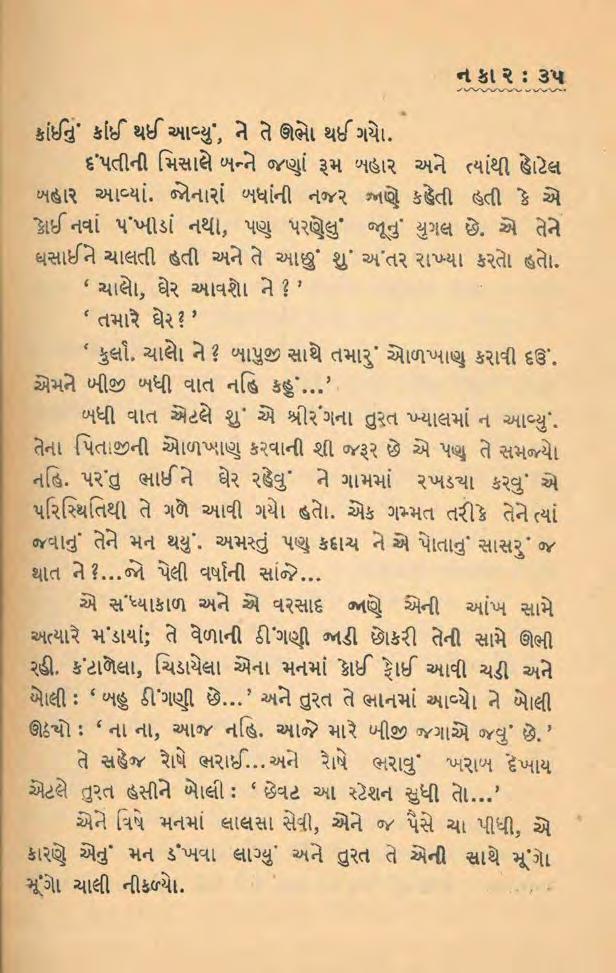 નકાર : ૩૫
કાંઈનું કાંઈ થઈ આવ્યું, ને તે ઊભો થઈ ગયો.
દંપતીની મિસાલે બન્ને જણાં રૂમ બહાર અને ત્યાંથી હોટેલ
બહાર આવ્યાં. જોનારાં બધાંની નજર જાણે કહેતી હતી કે એ
કોઈ નવાં પંખીડાં નથી, પણ પરણેલું જૂનું યુગલ છે. એ તેને
ઘસાઈને ચાલતી હતી અને તે આછું શું અંતર રાખ્યા કરતો હતો.
‘ ચાલો, ઘેર આવશો ને ? ’
‘ તમારે ઘેર ? ’
‘ કુર્લા. ચાલો ને ? બાપુજી સાથે તમારું ઓળખાણ કરાવી દઉં.
એમને બીજી બધી વાત નહિ કહું...’
બધી વાત એટલે શું એ શ્રીરંગના તુરત ખ્યાલમાં ન આવ્યું.
તેના પિતાજીની ઓળખાણ કરવાની શી જરૂર છે એ પણ તે સમજ્યો
નહિ. પરંતુ ભાઈને ઘેર રહેવું ને ગામમાં રખડ્યા કરવું એ
પરિસ્થિતિથી તે ગળે આવી ગયો હતો. એક ગમ્મત તરીકે તેને ત્યાં
જવાનું તેને મન થયું. અમસ્તું પણ કદાચ ને એ પોતાનું સાસરું જ
થાત ને ?...જો પેલી વર્ષાની સાંજે...
એ સંધ્યાકાળ અને એ વરસાદ જાણે એની આંખ સામે
અત્યારે મંડાયાં; તે વેળાની ઠીંગણી જાડી છોકરી તેની સામે ઊભી
રહી. કંટાળેલા, ચિડાયેલા એના મનમાં કોઈ ફોઈ આવી ચડી અને
બોલી : ‘ બહુ ઠીંગણી છે...’ અને તુરત તે ભાનમાં આવ્યો ને બોલી
ઊઠ્યો : ‘ ના ના, આજ નહિ. આજે મારે બીજી જગાએ જવું છે. ’
તે સહેજ રોષે ભરાઈ...અને રોષે ભરાવું ખરાબ દેખાય
એટલે તુરત હસીને બોલી : ‘ છેવટ આ સ્ટેશન સુધી તો...’
એને વિષે મનમાં લાલસા સેવી, એને જ પૈસે ચા પીધી, એ
કારણે એનું મન ડંખવા લાગ્યું અને તુરત તે એની સાથે મૂંગો
મૂંગો ચાલી નીકળ્યો.